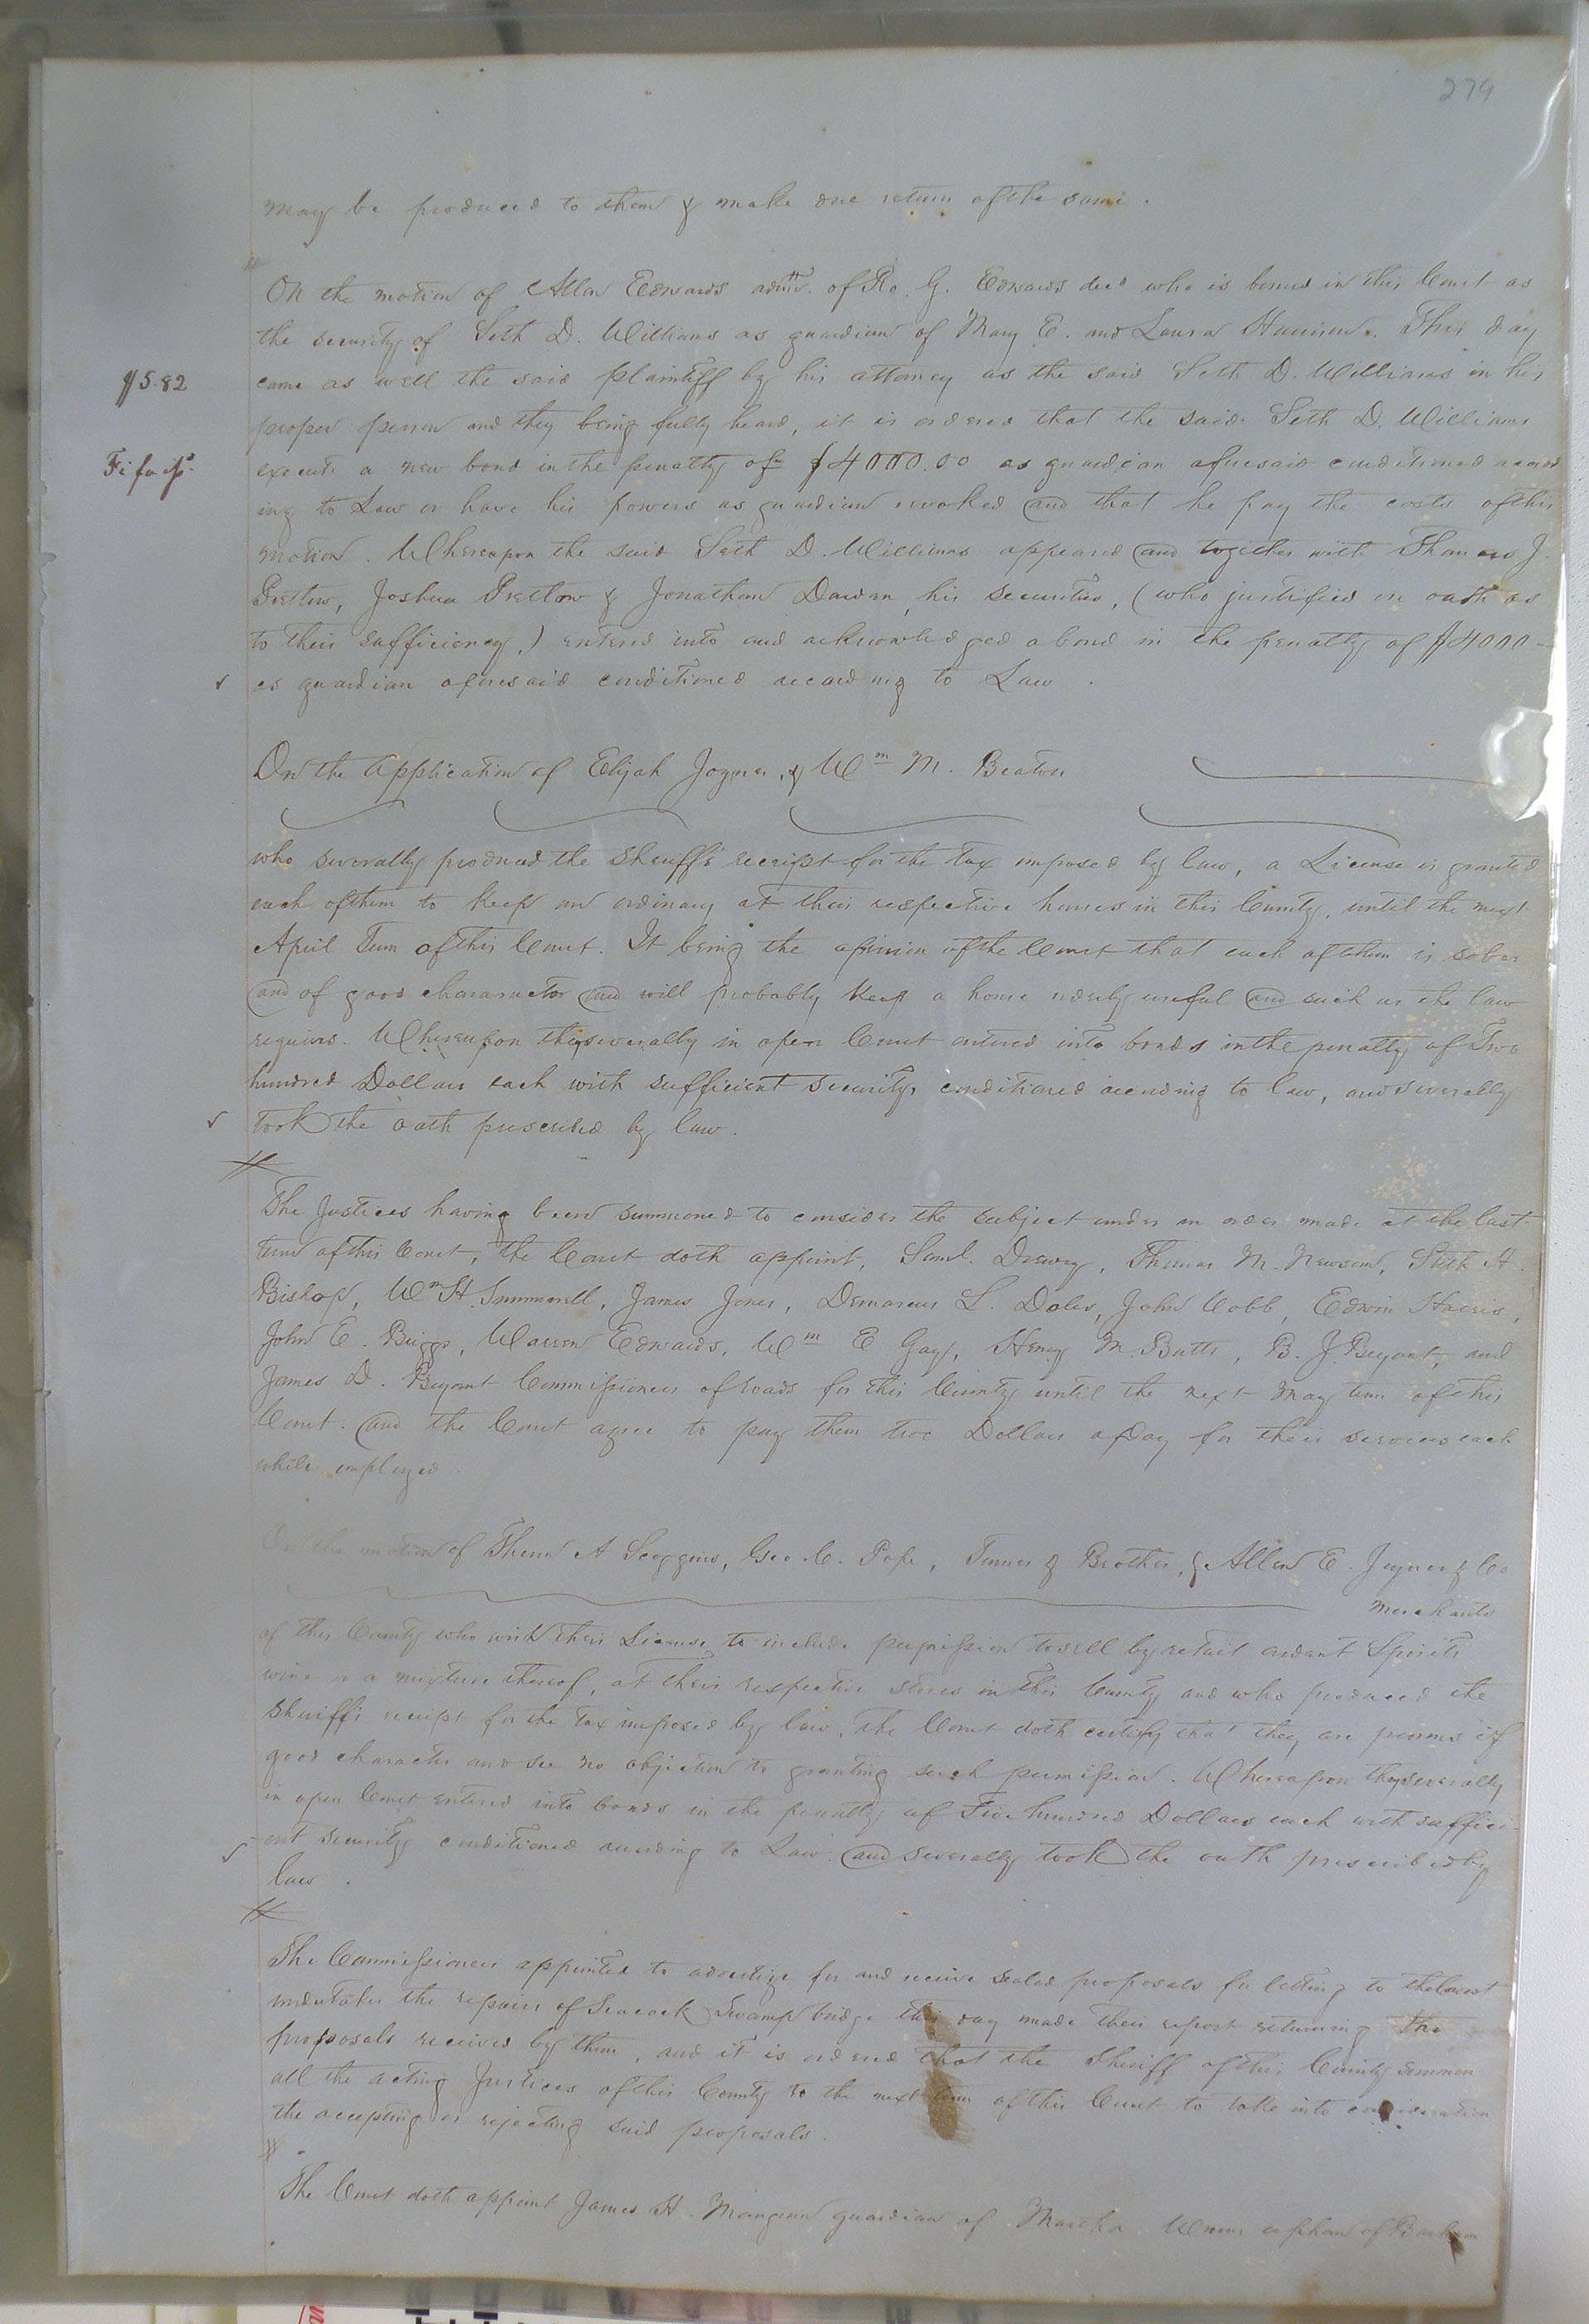 279
may be produced to them & make due return of the same.
On the motion of Allen Edwards admr. of Ro. G. Edwards decd who is bound in this Court as
the security of Seth D. Williams as guardian of Mary E. and Laura Harrison. This day
$5.82
came as well the said plaintiff by his attorney as the said Seth D. Williams in his
proper person and they being fully heard, it is ordered that the said Seth D. Williams
Fi fa
execute a new bond in the penalty of $4000.00 as guardian aforesaid conditioned accord
ing to Law or have his powers as guardian revoked and that he pay the costs of this
motion. Whereupon the said Seth D. Williams appeared and together with Thomas J.
Pretlow, Joshua Pretlow & Jonathan Darden, his securities, (who justified on oath as
to their sufficiency,) entered into and acknowledged a bond in the penalty of $4000—
as guardian aforesaid conditioned according to Law.
On the application of Elijah Joyner, & Wm M. Beaton
who severally produced the Sheriff's receipt for the Tax imposed by law, a License is granted
each of them to keep an ordinary at their respective houses in this County, until the next
April Term of this Court. It being the opinion of the Court that each of them is sober
and of good character and will probably keep a house orderly useful and such as the law
requires. Whereupon they severally in open Court entered into bonds in the penalty of Two
hundred Dollars each with sufficient security conditioned according to law, and severally
took the oath prescribed by law.
The Justices having been summoned to consider the subject under an order made at the last
term of this Court, the Court doth appoint, Saml. Drewry, Thomas M. Newsom, Seth H.
Bishop, Wm H. Summerell, James Jones, Demarcus L. Doles, John Cobb, Edwin Harris,
John E. Briggs, Warren Edwards, Wm E Gay, Henry M. Butts, B. J. Bryant, and
James D. Bryant Commissioners of roads for this County until the next May term of this
Court. and the Court agree to pay them two Dollars a Day for their services each
while employed
On the motion of A Scoggins, Geo C. Pope, Turner & Brother, & Allen E. Joyner & Co
Merchants
of this County who wish their License to include permission to sell by retail ardent Spirits
wine or a mixture thereof, at their respective stores in this County and who produced the
Sheriff's receipt for the Tax imposed by law, the Court doth certify that they are persons of
good character and see no objection to granting such permission. Whereupon they severally
in open Court entered into bonds in the penalty of Five hundred Dollars each with suffici-
-ent security conditioned according to Law. and severally took the oath prescribed by
law.
The Commissioners appointed to advertize for and receive sealed proposals for letting to the lowest
undertaker the repairs of Seacock Swamp bridge this day made their report returning the
proposals received by them, and it is ordered that the Sheriff of this County summon
all the acting Justices of this County to the next term of this Court to take into consideration
the accepting or rejecting said proposals.
The Court doth appoint James H. Mangum guardian of Martha orphan of